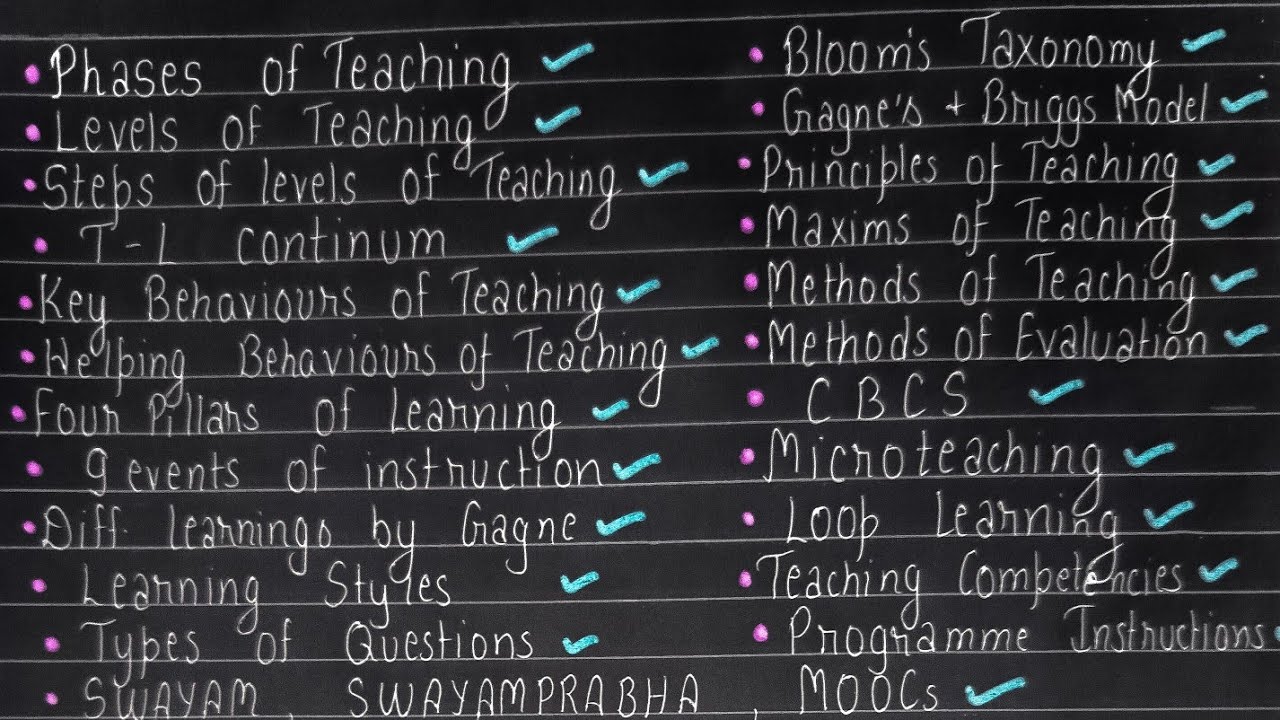 Phases of Teaching
Levels of Teaching
Steps of levels of Teaching
T-L continum
Key Behaviours of Teaching
Helping Behaviours of Teaching
Four Pillars of Learning
9 events of instruction
Diff. learnings by Gagne
Learning Styles
Types of Questions
SWAYAM, SWAYAMPRABHA, MOOCs
Bloom's Taxonomy
Gagne's + Briggs Model
Principles of Teaching
Maxims of Teaching
Methods of Teaching
Methods of Evaluation
CBCS
Microteaching
Loop Learning
Teaching Competencies
Programme Instructions